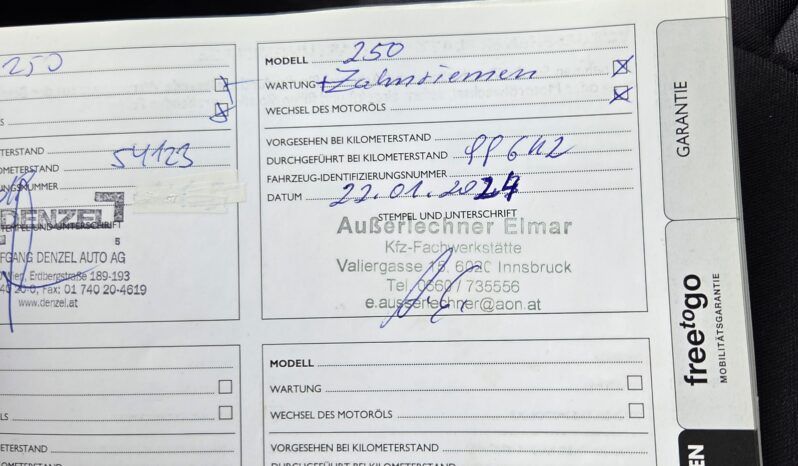 250
S
TERSTAND
LOMETERSTAND 54123
UNGSNUMMER
DENZEL
STEMPEL UND UNTERSCHRIFT
FGANG DENZEL AUTO AG
Wien, Erdbergstraße 189-193
Fax: 01 740 20-4619
www.denzel.at
MODELL 250
WARTUNG + Zahnriemen
WECHSEL DES MOTORÖLS
VORGESEHEN BEI KILOMETERSTAND
DURCHGEFÜHRT BEI KILOMETERSTAND 99642
FAHRZEUG-IDENTIFIZIERUNGSNUMMER
DATUM 22.01.2024
STEMPEL UND UNTERSCHRIFT
Außerlechner Elmar
Kfz-Fachwerkstätte
Valiergasse 15, 6020 Innsbruck
Tel. 0660 / 735556
e.ausserlechner@aon.at
LS
METERSTAND
KILOMETERSTAND
MODELL
WARTUNG
WECHSEL DES MOTORÖLS
VORGESEHEN BEI KILOMETERSTAND
DURCHGEFÜHRT BEI KILOMETERSTAND
GARANTIE
freetogo
MOBILITÄTSGARANTIE
EN